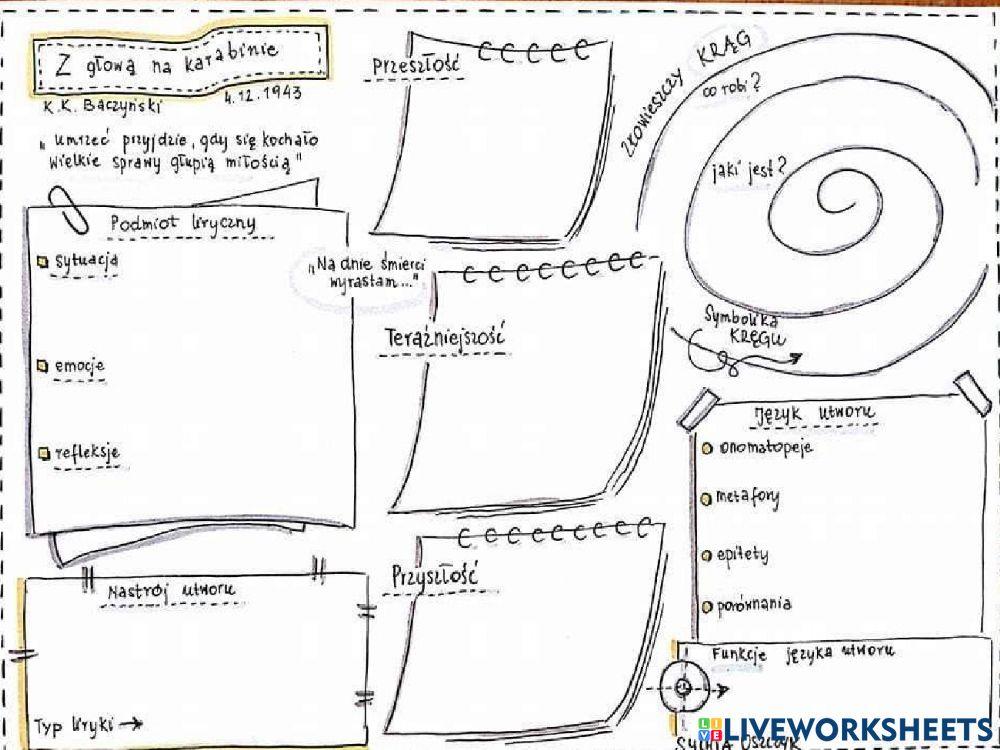 Z głową na karabinie
K.K. Baczyński 4.12.1943
„umrzeć przyjdzie, gdy się kochało
wielkie sprawy głupią miłością"
Podmiot liryczny
sytuacja
emocje
refleksje
Nastrój utworu
Typ liryki →
Przeszłość
„Na dnie śmierci
wyrastam..."
Teraźniejszość
Przyszłość
złowieszczy KRĄG
co robi?
jaki jest?
Symbolika
KRĘGU
Język utworu
onomatopeje
metafory
epitety
porównania
Funkcje języka utworu
Sylwia Oszczyk
LIVEWORKSHEETS